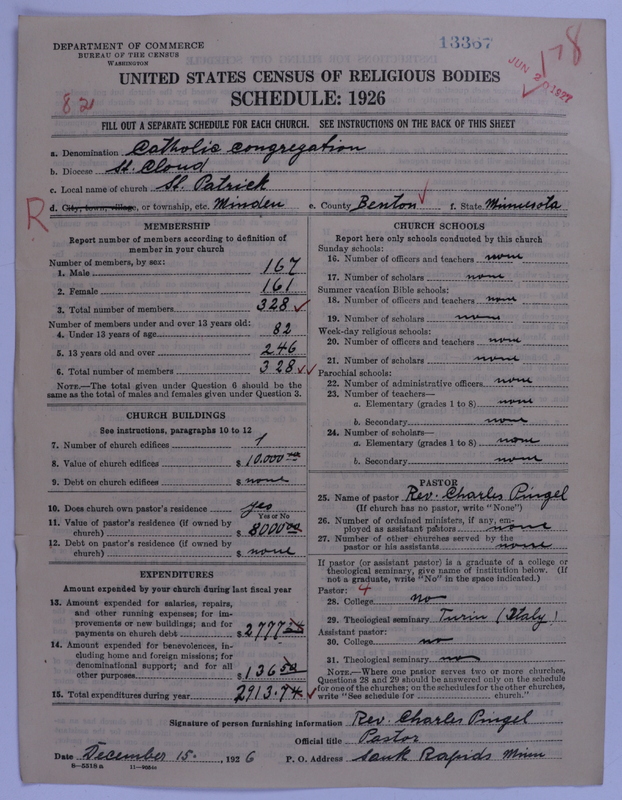 DEPARTMENT OF COMMERCE
BUREAU OF THE CENSUS
WASHINGTON
13367
JUN 20 1927
178
UNITED STATES CENSUS OF RELIGIOUS BODIES
SCHEDULE: 1926
82
FILL OUT A SEPARATE SCHEDULE FOR EACH CHURCH. SEE INSTRUCTIONS ON THE BACK OF THIS SHEET
a. Denomination Catholic Congregation
b. Diocese St. Cloud
c. Local name of church St. Patrick
R
d. City, town, village, or township, etc. Minden e. County Benton f. State Minnesota
MEMBERSHIP
Report number of members according to definition of
member in your church
Number of members, by sex:
1. Male 167
2. Female 161
3. Total number of members 328
Number of members under and over 13 years old:
4. Under 13 years of age 82
5. 13 years old and over 246
6. Total number of members 328
NOTE.—The total given under Question 6 should be the
same as the total of males and females given under Question 3.
CHURCH BUILDINGS
See instructions, paragraphs 10 to 12
7. Number of church edifices 1
8. Value of church edifices $ 10.000 00
9. Debt on church edifices $ none
10. Does church own pastor's residence yes
Yes or No
11. Value of pastor's residence (if owned by
church) $ 8000 00
12. Debt on pastor's residence (if owned by
church) $ none
EXPENDITURES
Amount expended by your church during last fiscal year
13. Amount expended for salaries, repairs,
and other running expenses; for im-
provements or new buildings; and for
payments on church debt $ 2777
14. Amount expended for benevolences, in-
cluding home and foreign missions; for
denominational support; and for all
other purposes $ 136 50
15. Total expenditures during year 2913.74
CHURCH SCHOOLS
Report here only schools conducted by this church
Sunday schools:
16. Number of officers and teachers none
17. Number of scholars none
Summer vacation Bible schools:
18. Number of officers and teachers none
19. Number of scholars none
Week-day religious schools:
20. Number of officers and teachers none
21. Number of scholars none
Parochial schools:
22. Number of administrative officers none
23. Number of teachers—
a. Elementary (grades 1 to 8) none
b. Secondary none
24. Number of scholars—
a. Elementary (grades 1 to 8) none
b. Secondary none
PASTOR
25. Name of pastor Rev. Charles Pingel
(If church has no pastor, write "None")
26. Number of ordained ministers, if any, em-
ployed as assistant pastors none
27. Number of other churches served by the
pastor or his assistants none
If pastor (or assistant pastor) is a graduate of a college or
theological seminary, give name of institution below. (If
not a graduate, write "No" in the space indicated.)
Pastor: 4
28. College no
29. Theological seminary Turin (Italy)
Assistant pastor:
30. College no
31. Theological seminary no
NOTE.—Where one pastor serves two or more churches,
Questions 28 and 29 should be answered only on the schedule
for one of the churches; on the schedules for the other churches,
write "See schedule for church."
Signature of person furnishing information Rev. Charles Pingel
Official title Pastor
Date December 15., 1926 P. O. Address Sauk Rapids Minn
8—5518 a 11—9024a